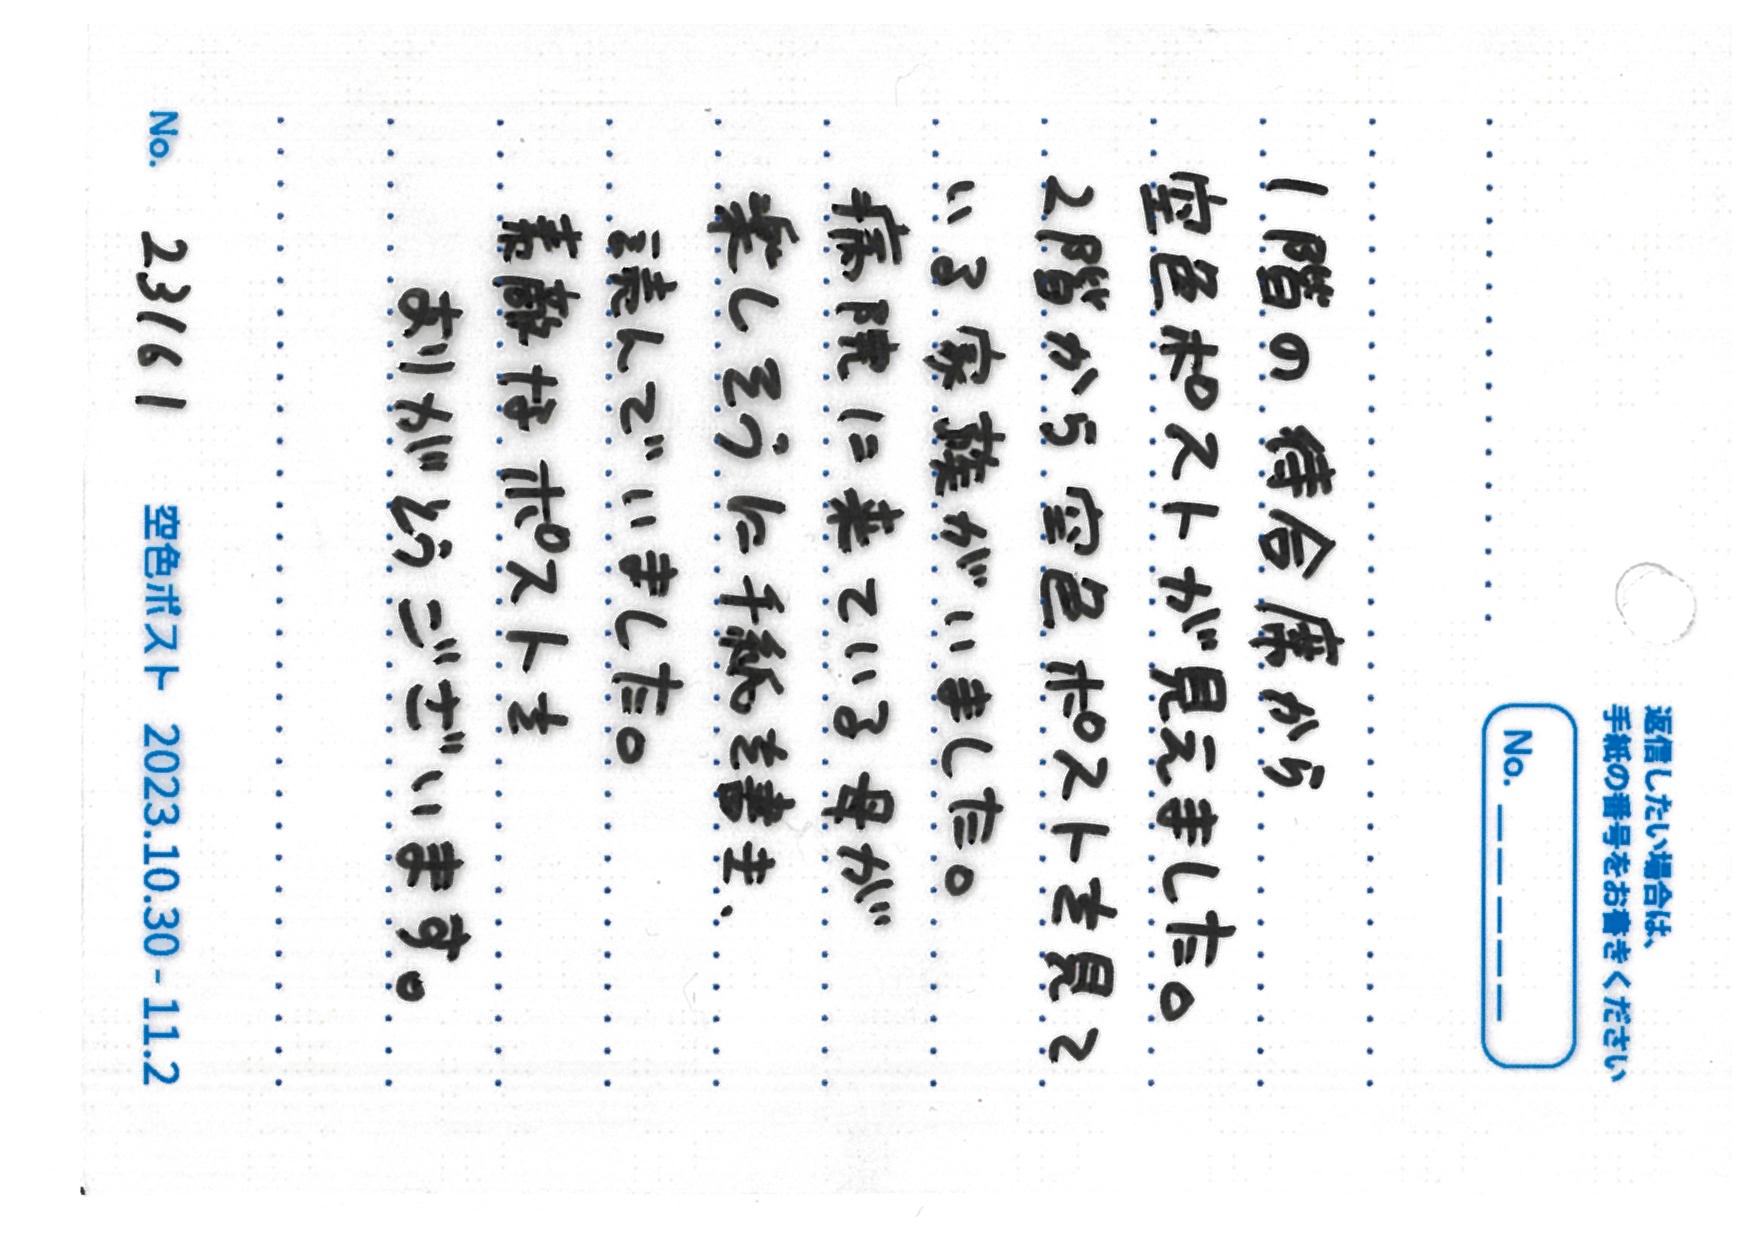 返信したい場合は、
手紙の番号をお書きください
No. _ _ _ _ _
1階の待合席から
空色ポストが見えました。
2階から空色ポストを見て
いる家族がいました。
病院に来ている母が
楽しそうに手紙を書き、
読んでいました。
素敵なポストを
ありがとうございます。
No. 23161 空色ポスト 2023.10.30 - 11.2